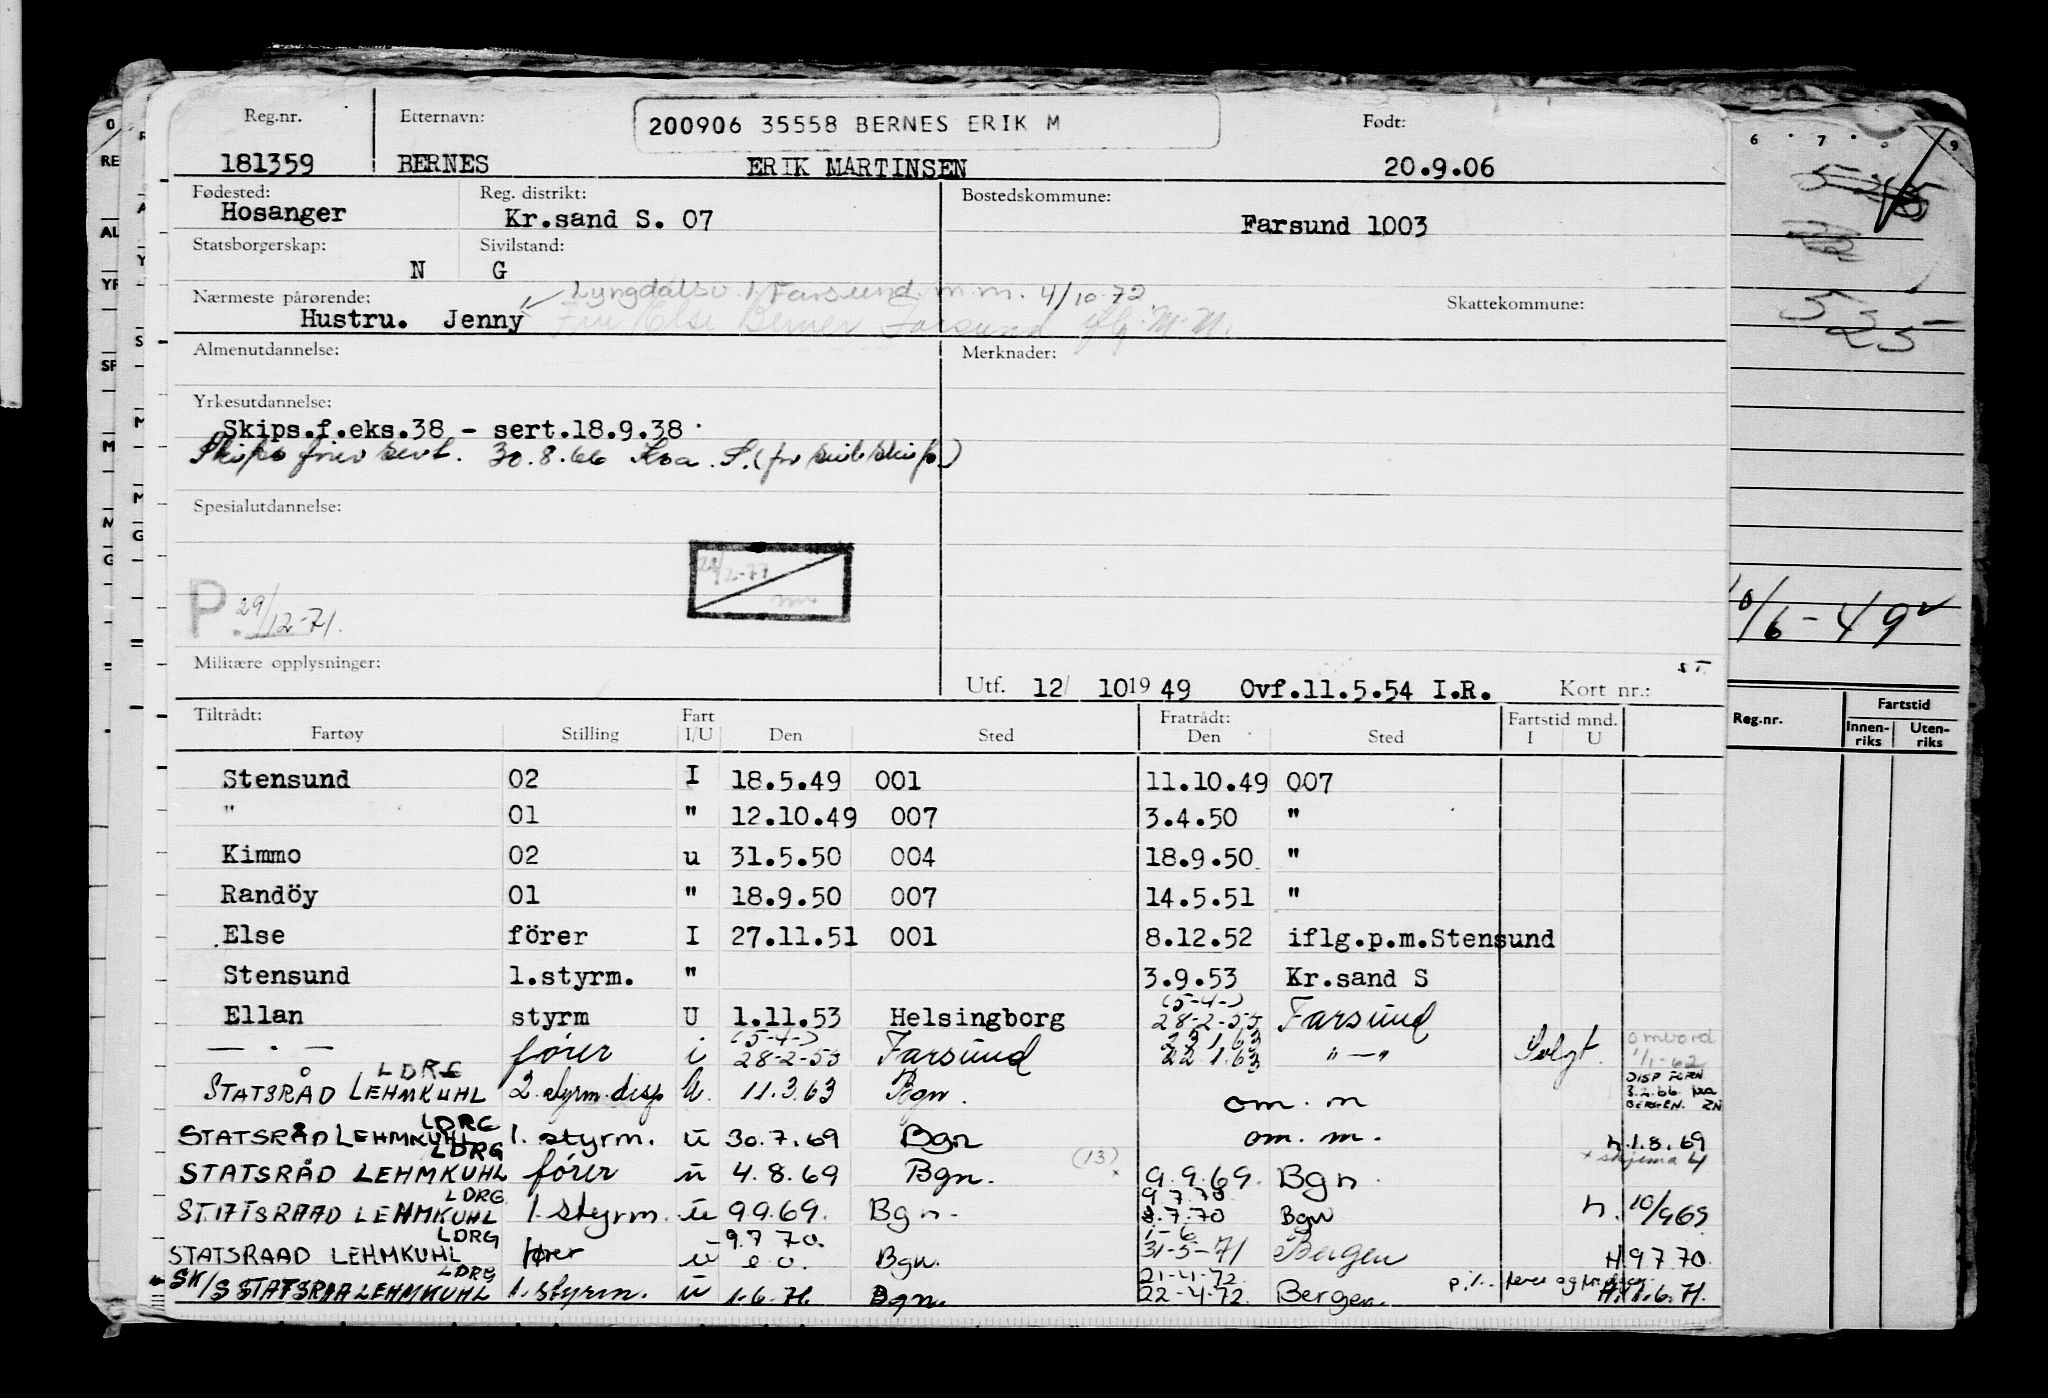 Reg.nr. Etternavn: 200906 35558 BERNES ERIK M Født:
181359 BERNES ERIK MARTINSEN 20.9.06
Fødested: Reg. distrikt: Bostedskommune:
Hosanger Kr.sand S. 07 Farsund 1003
Statsborgerskap: Sivilstand:
N G
Lyngdalsv. 1 Farsund m.m. 4/10.72
Nærmeste pårørende: Skattekommune:
Hustru. Jenny Fru Else Farsund
Almenutdannelse: Merknader:
Yrkesutdannelse:
Skips.f.eks.38 - sert.18.9.38
30.8.66
Spesialutdannelse:
P. 29/12-71.
Militære opplysninger:
Utf. 12/ 10 19 49 Ovf.11.5.54 I.R. Kort nr.:
Tiltrådt: Fart Fratrådt: Fartstid mnd.
Fartøy Stilling I/U Den Sted Den Sted I U
Stensund 02 I 18.5.49 001 11.10.49 007
" 01 " 12.10.49 007 3.4.50 "
Kimmo 02 u 31.5.50 004 18.9.50 "
Randöy 01 " 18.9.50 007 14.5.51 "
Else förer I 27.11.51 001 8.12.52 iflg.p.m.Stensund
Stensund 1.styrm. " 3.9.53 Kr.sand S
(5-4-)
Ellan styrm U 1.11.53 Helsingborg 28-2-55 Farsund
(5-4-) 23.1.63
— . — fører i 28-2-55 Farsund 22 1.63 " — " Solgt. ombord 1/1-62
LDRG
STATSRÅD LEHMKUHL 2. styrm. disp U. 11.3.63 Bgn. om. m DISP FORN 3.2.66
BERGEN.
LDRG
STATSRÅD LEHMKUHL 1. styrm. ū 30.7.69 Bgn om. m. h.1.8.69
LDRG
STATSRÅD LEHMKUHL fører ū 4.8.69 Bgn. (13) x 9.9.69. Bgn. x skjema 4
LDRG 9.7.70
STATSRAAD LEHMKUHL 1. styrm. ū 9.9.69. Bgn. 8.7.70 Bgn h. 10/9 69
LDRG 9.7 70. 1-6
STATSRAAD LEHMKUHL fører ū e.o. Bgn. 31-5-71 Bergen H 9 7 70.
LDRG 21-4-72
SK/S STATSRAA LEHMKUHL 1. styrm. ū 1.6.71. Bgn. 22-4-72. Bergen. H. 1.6.71.
6 7 9
525
10/6-49
Reg.nr. Fartstid
Innen-riks Uten-riks